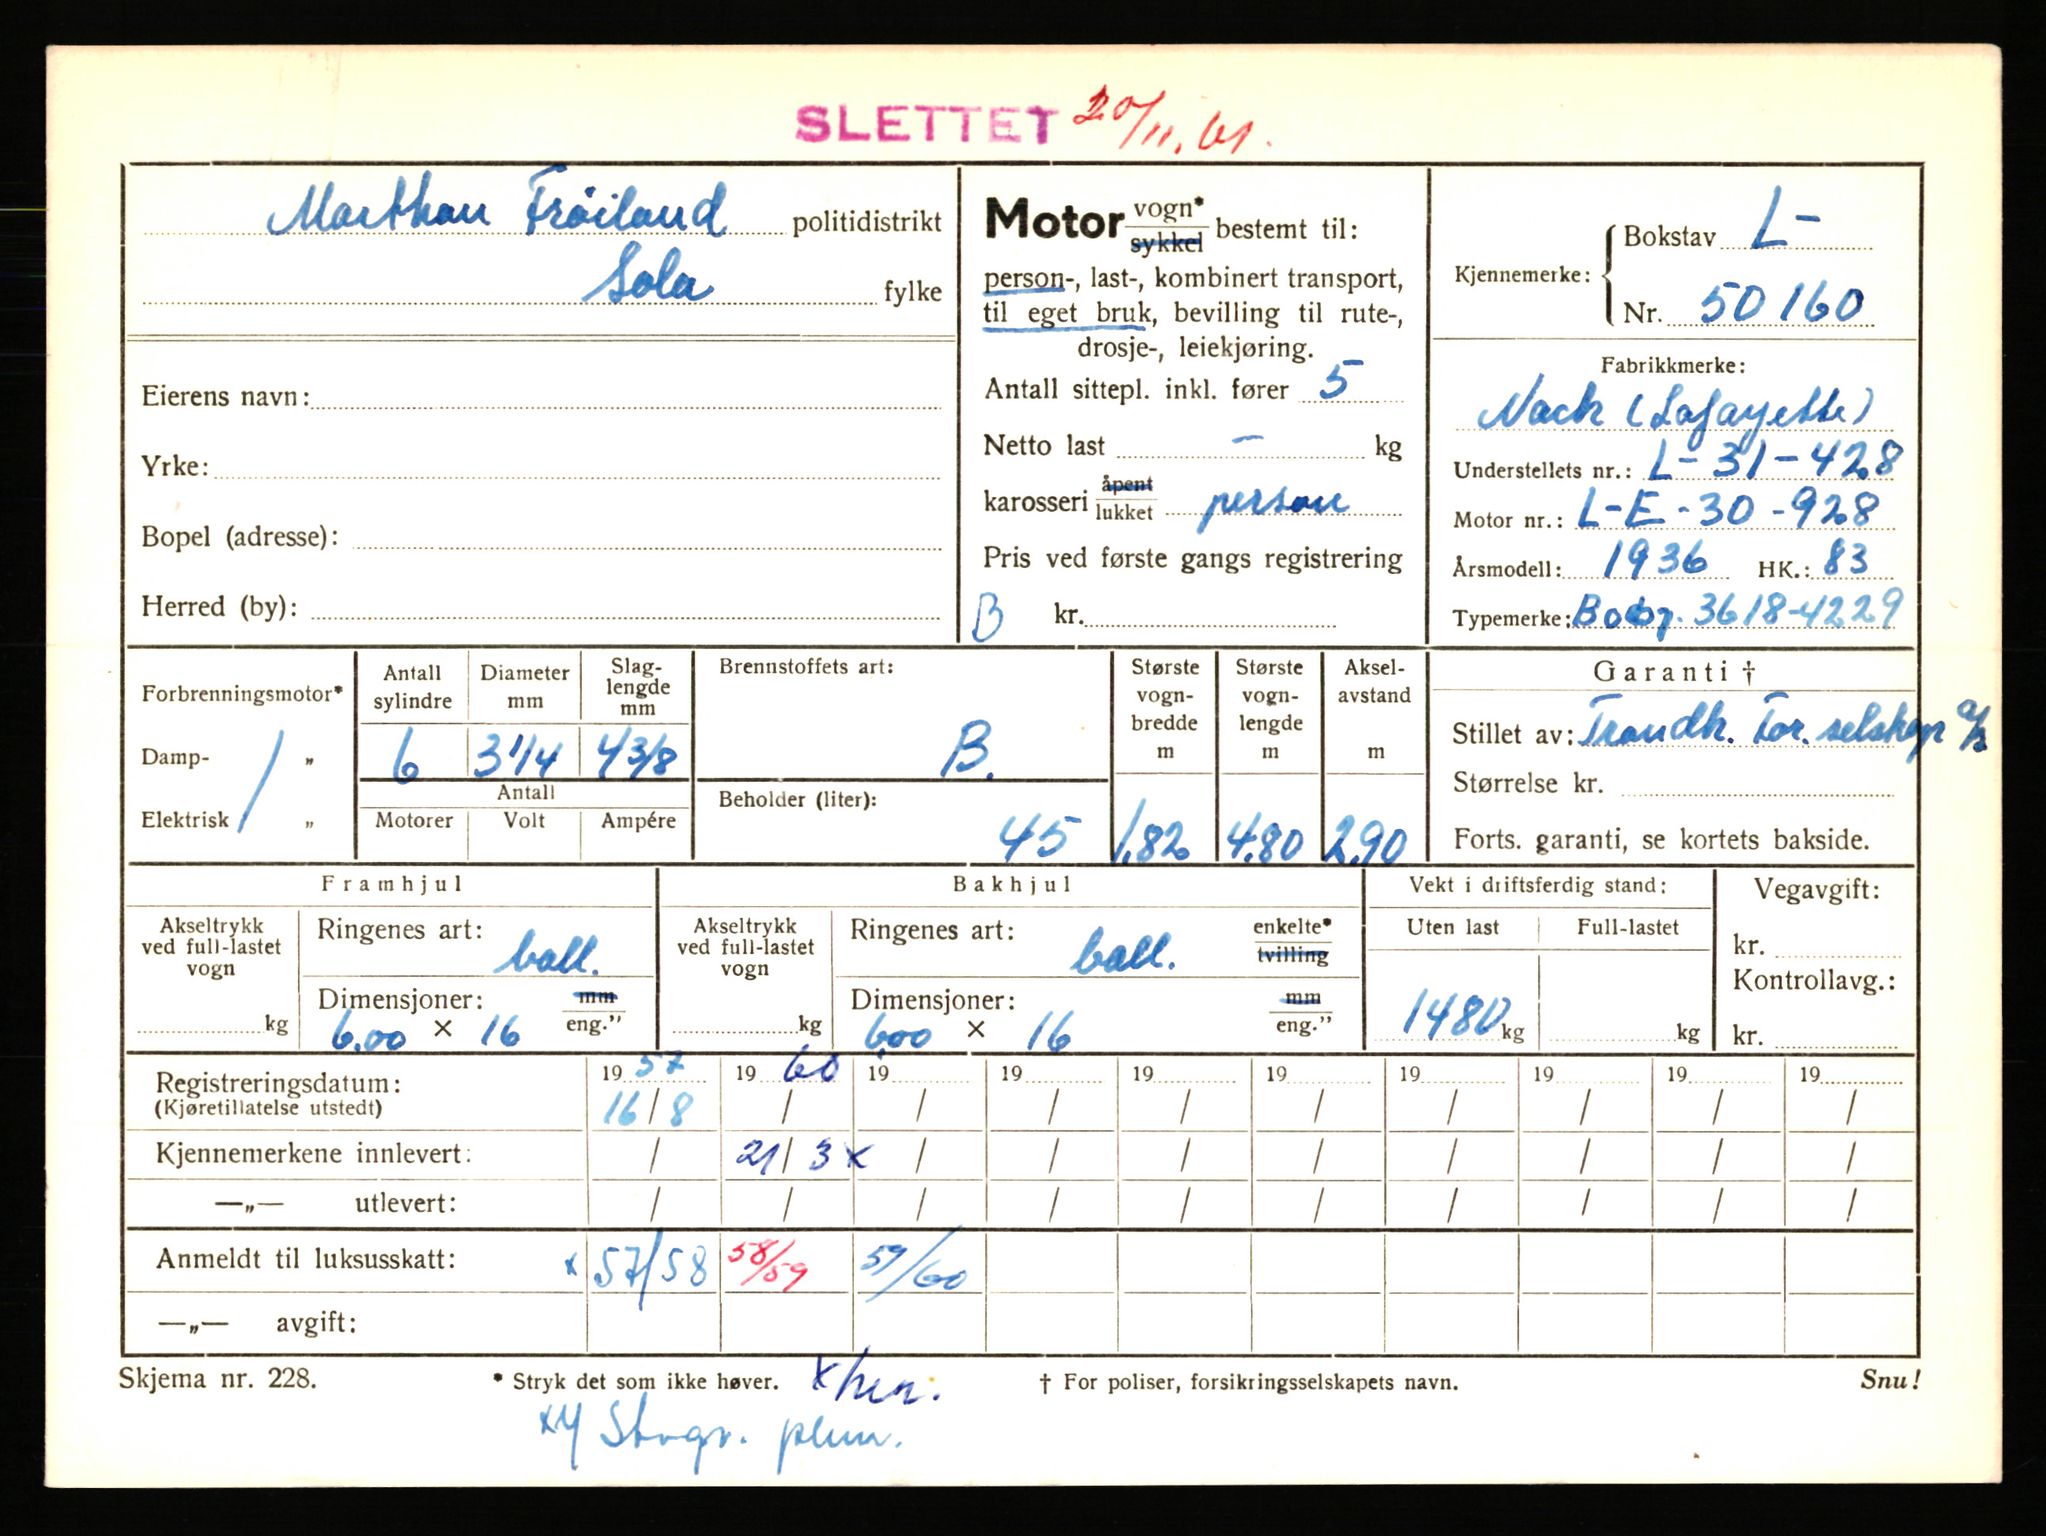 SLETTET 20/11.61.
Marthon Frøiland politidistrikt
Sola fylke
Eierens navn:
Yrke:
Bopel (adresse):
Herred (by):
Motor vogn* sykkel bestemt til:
person-, last-, kombinert transport,
til eget bruk, bevilling til rute-,
drosje-, leiekjøring.
Antall sittepl. inkl. fører 5
Netto last – kg
karosseri åpent lukket person
Pris ved første gangs registrering
B kr.
Kjennemerke: Bokstav L-
Nr. 50160
Fabrikkmerke:
Nach (Lafayette)
Understellets nr.: L-31-428
Motor nr.: L-E-30-928
Årsmodell: 1936 HK.: 83
Typemerke: 3618-4229
Forbrenningsmotor*
Damp- „
Elektrisk „
Antall sylindre
6
Diameter mm
3 1/4
Slag- lengde mm
4 3/8
Antall
Motorer Volt Ampére
Brennstoffets art:
B.
Beholder (liter):
45
Største vogn- bredde m
1.82
Største vogn- lengde m
4.80
Aksel- avstand m
2.90
Garanti †
Stillet av: Trondh. For. selskap a/s
Størrelse kr.
Forts. garanti, se kortets bakside.
Framhjul
Akseltrykk ved full-lastet vogn
kg
Ringenes art: ball.
Dimensjoner: mm eng.”
6.00 × 16
Bakhjul
Akseltrykk ved full-lastet vogn
kg
Ringenes art: ball. enkelte* tvilling
Dimensjoner: mm eng.”
600 × 16
Vekt i driftsferdig stand:
Uten last Full-lastet
1480 kg kg
Vegavgift:
kr.
Kontrollavg.:
kr.
Registreringsdatum: 19 57 19 60 19 19 19 19 19 19 19 19
(Kjøretillatelse utstedt) 16/8 / / / / / / / / /
Kjennemerkene innlevert: / 21/3 x / / / / / / / /
—„— utlevert: / / / / / / / / / /
Anmeldt til luksusskatt: x 57/58 58/59 59/60
—„— avgift:
Skjema nr. 228. * Stryk det som ikke høver. x hen. † For poliser, forsikringsselskapets navn. Snu!
Stvgr.